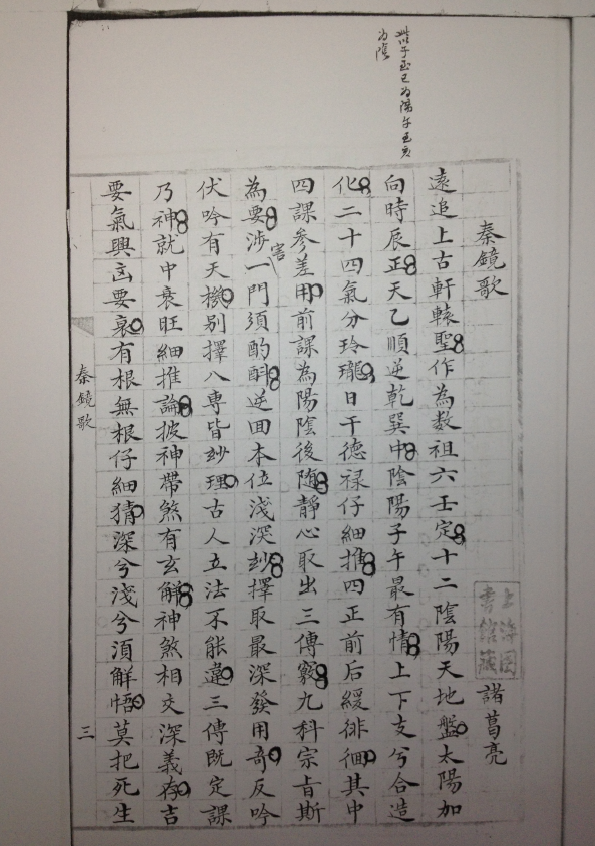 子至巳为陽午至亥
为陰
秦鏡歌
上海圖
書館藏
諸葛亮
遠追上古軒轅聖作為数祖六壬定十二陰陽天地盤太陽加
向時辰正天乙順逆乾巽中陰陽子午最有情上下支兮合造
化二十四氣分玲瓏日干德禄仔細推四正前后緩徘徊其中
四課參差用前課為陽陰後随靜心取出三傳竅九科宗旨斯
為要涉害一門須酌斟逆囬本位淺深玅擇取最深發用奇反吟
伏吟有天機别擇八専皆玅理古人立法不能違三傳既定課
乃神就中衰旺細推論披神帶煞有玄解神煞相交深義存吉
要氣興凶要衰有根無根仔細猜深兮淺兮須解悟莫把死生
秦鏡歌
三